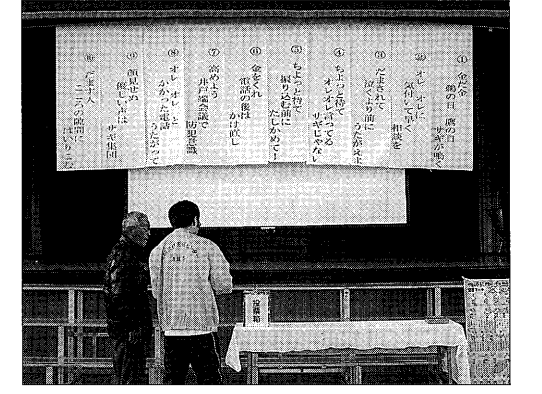 ① 金だ金
鵜の目 鷹の目
サギが鳴く
② オレオレに
気付いて早く
相談を
③ だまされて
泣くより前に
うたがえよ
④ ちょっと待て
オレオレ言ってる
サギじゃない
⑤ ちょっと待て
振り込む前に
たしかめて!
⑥ 金をくれ
電話の後は
かけ直し
⑦ 高めよう
井戸端会議で
防犯意識
⑧ オレ オレ と
かかった電話
うたがって
⑨ 顔見せぬ
優しい声は
サギ集団
⑩ だます人
こころの隙間に
はいりこむ
投票箱